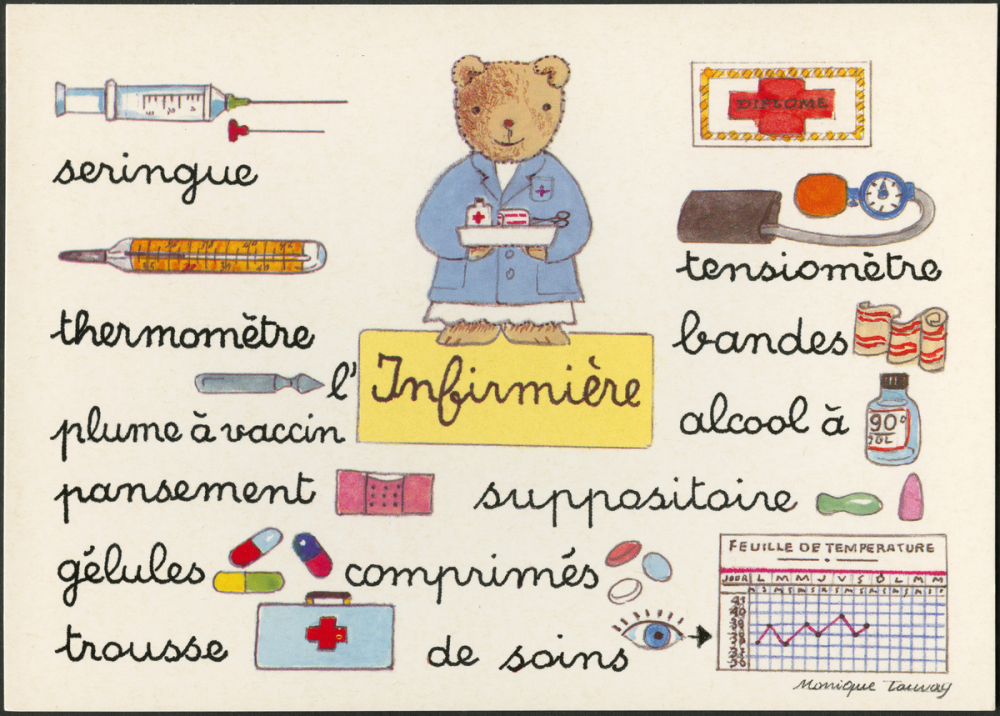 DIPLOME
seringue
tensiomètre
thermomètre
bandes
l'Infirmière
plume à vaccin
alcool à
90°
pansement
suppositoire
gélules
comprimés
trousse
de soins
FEUILLE DE TEMPERATURE
JOUR L M M J V S D L M M
41
40
39
38
37
36
Monique Touvay